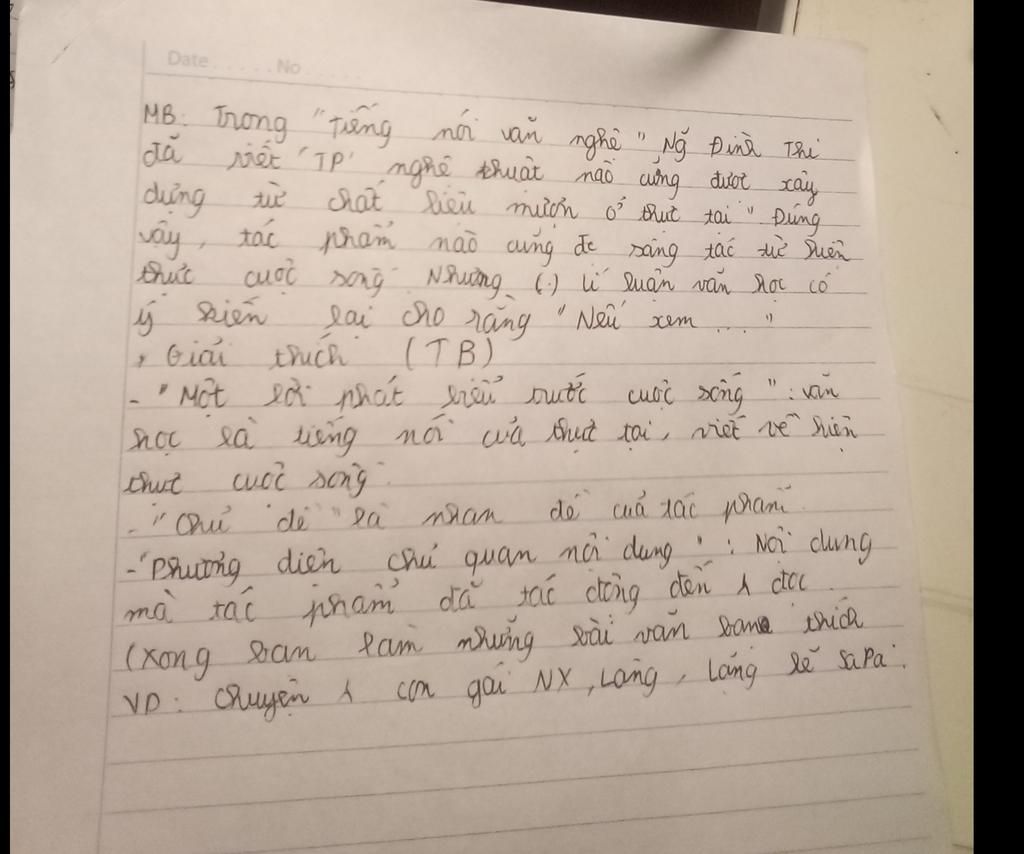 Date ..... No .....
MB: Trong "Tiếng nói văn nghệ" Ng Đình Thi
đã viết "TP nghệ thuật nào cũng được xây
dựng từ chất liệu mượn ở thực tại" Đúng
vậy, tác phẩm nào cũng đc sáng tác từ hiện
thực cuộc sống. Nhưng (.) lí luận văn học có
ý kiến lại cho rằng "Nếu xem ... "
, Giải thích (TB)
- "Một lời phát biểu trước cuộc sống": văn
học là tiếng nói của thực tại, viết về hiện
thực cuộc sống.
- "Chủ đề" là nhan đề của tác phẩm.
- "Phương diện chủ quan nội dung": Nội dung
mà tác phẩm đã tác động đến đọc.
(Xong bạn làm những bài văn bạn thích
VD: Chuyện con gái NX, Làng, Lặng lẽ SaPa.